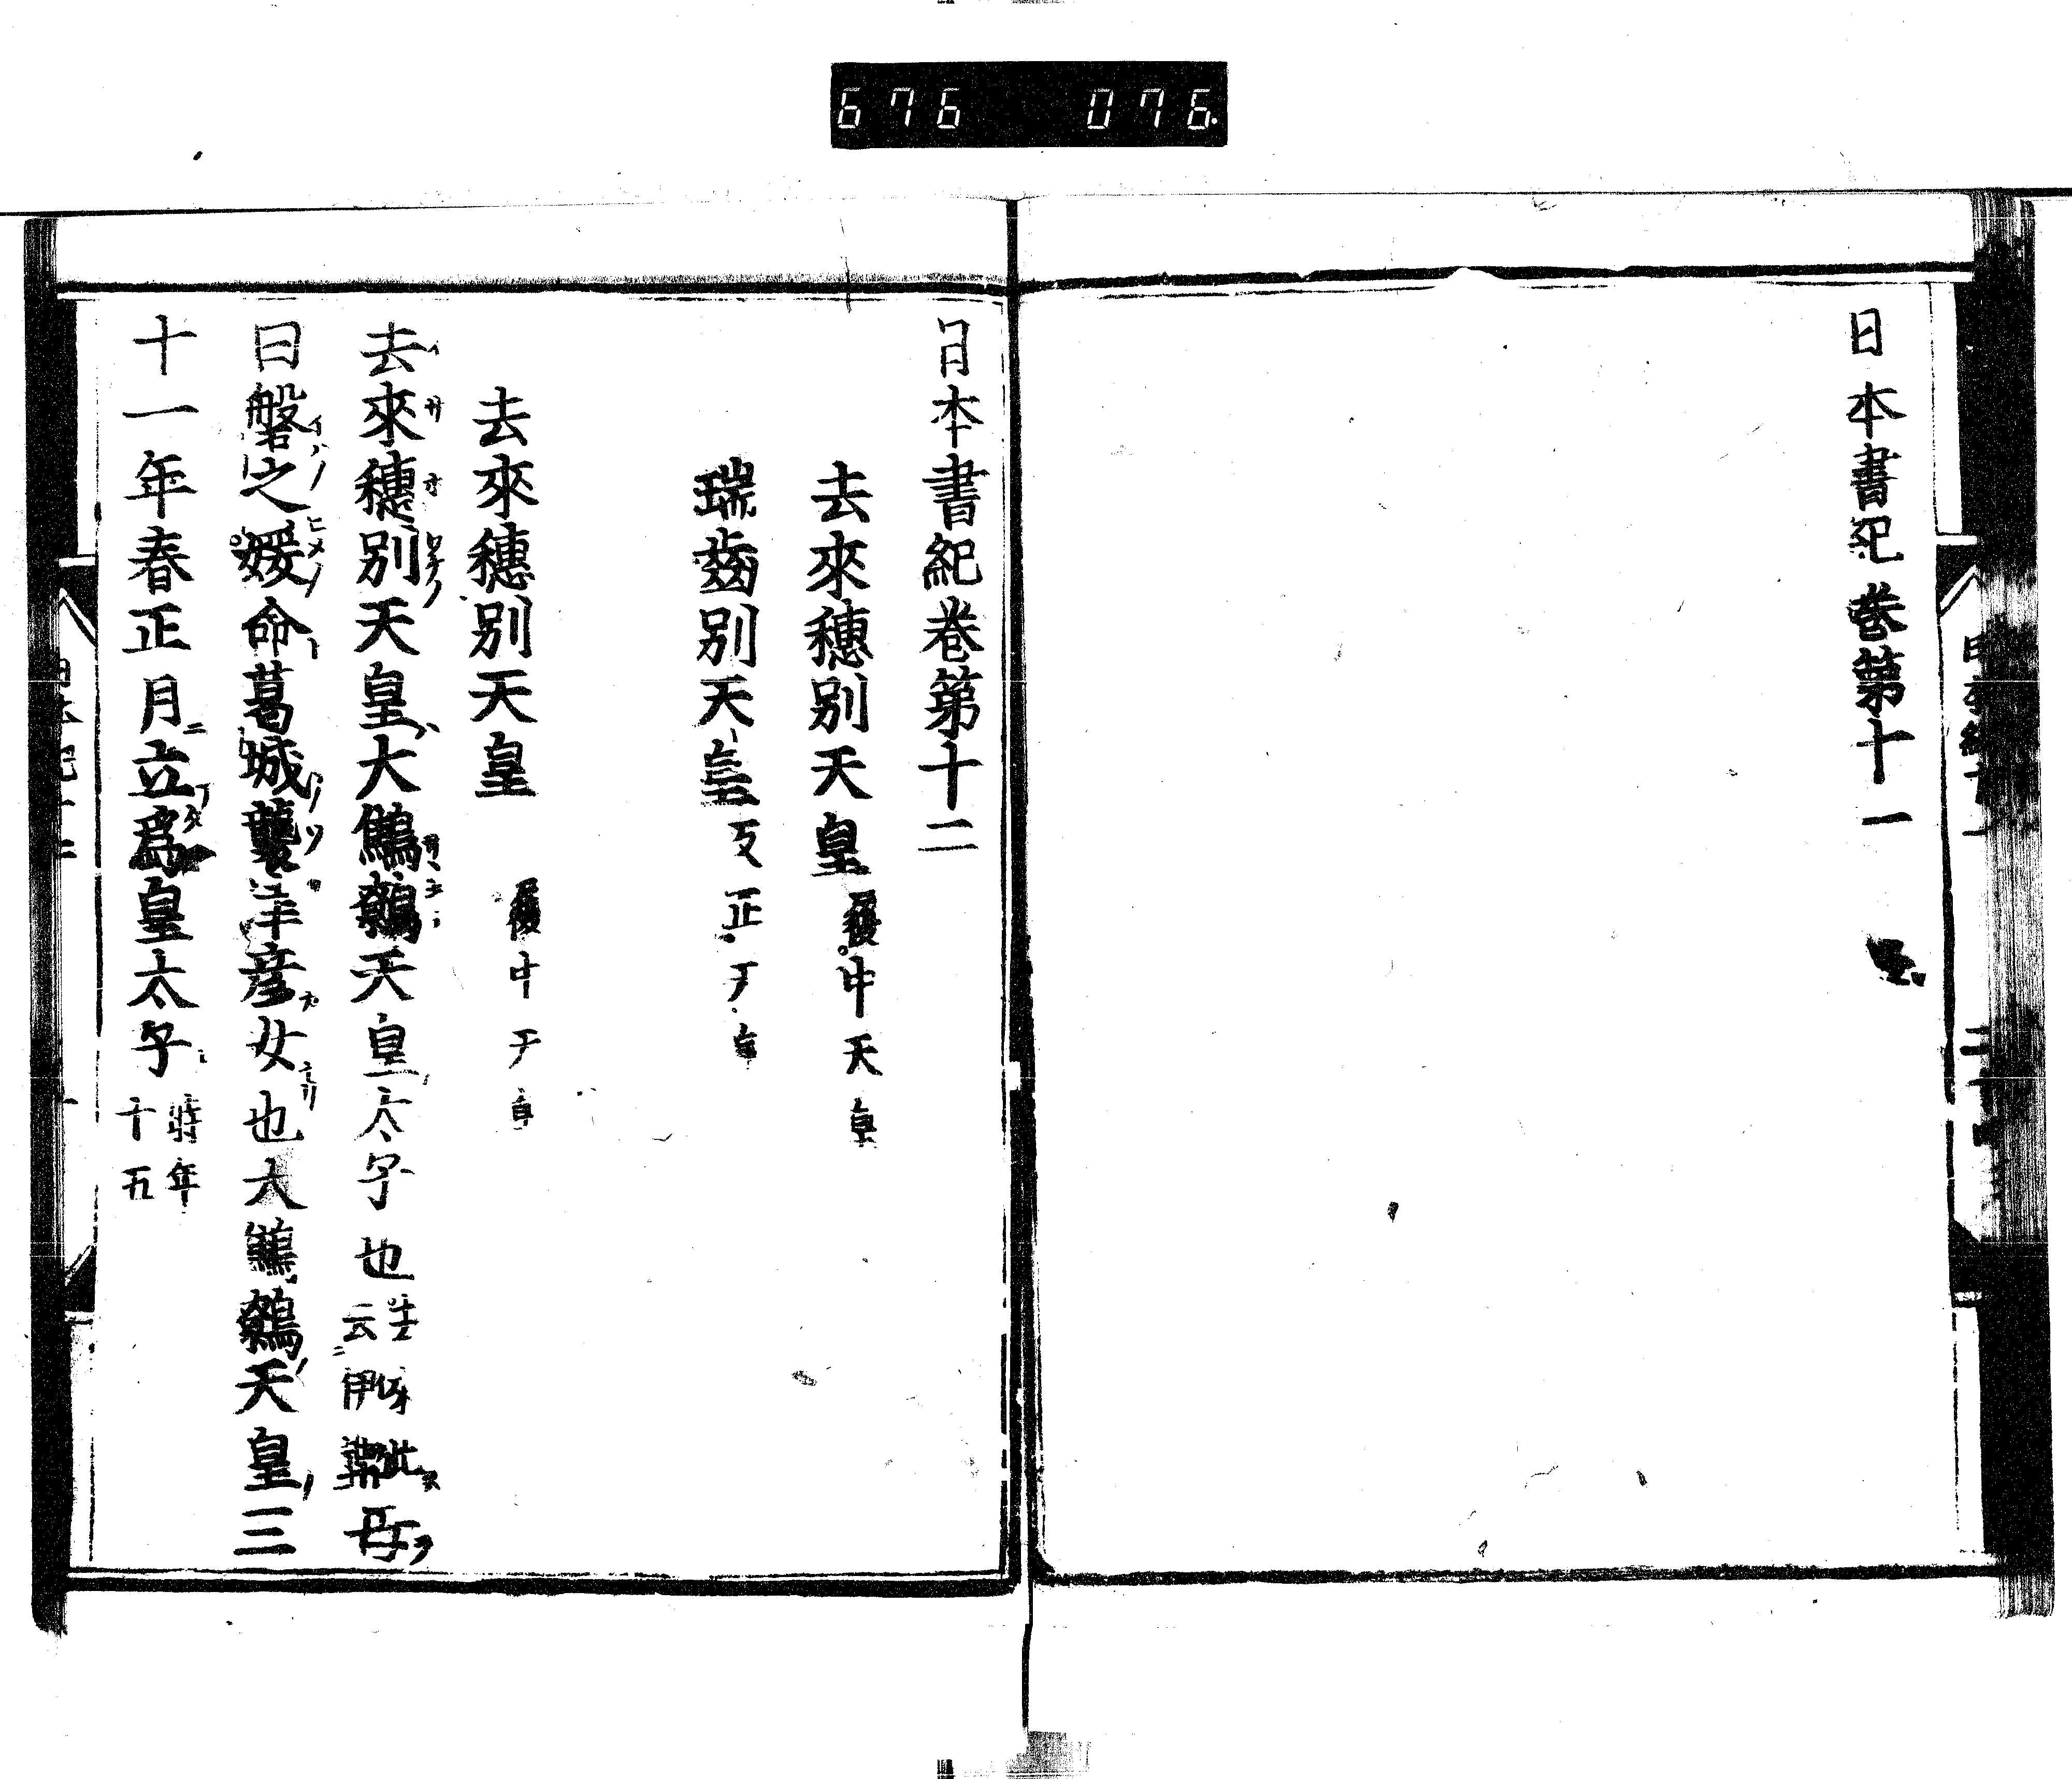 676 076
日本書紀巻第十一
日本書紀卷第十二
去來穗別天皇 履中天皇
瑞齒別天皇 反正天皇
去來穗別天皇 履中天皇
去來穗別天皇大鷦鷯天皇太子也 去來此云伊弉 母
曰磐之媛命葛城襲津彥女也大鷦鷯天皇三
十一年春正月立爲皇太子 時年十五